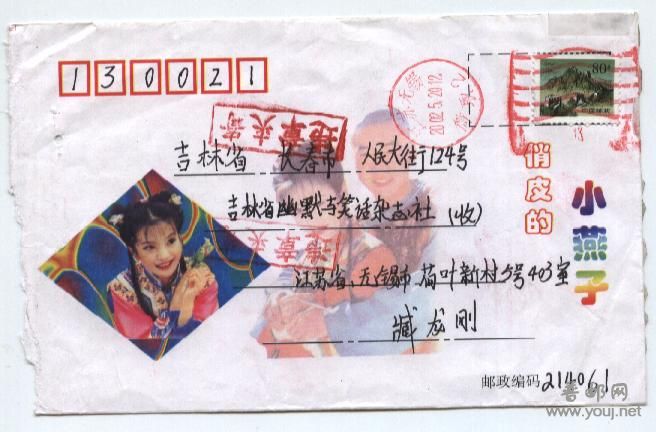 130021
80分
2002.5.20.12
吉林省 长春市 人民大街124号
俏皮的
小燕子
吉林省幽默与笑话杂志社(收)
江苏省、无锡市 荷叶新村 号403室
臧龙刚
邮政编码 214061
集邮网
www.youj.net